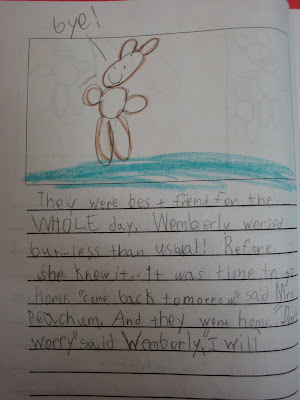 bye!
They were best friend for the
WHOLE day. Wemberly woried
but... less than usual! Before
she knew it... It was time to go
home. "come back tomorrow," said Mrs.
Peachum. And they went home. "Dont
worry" said Wemberly, "I will